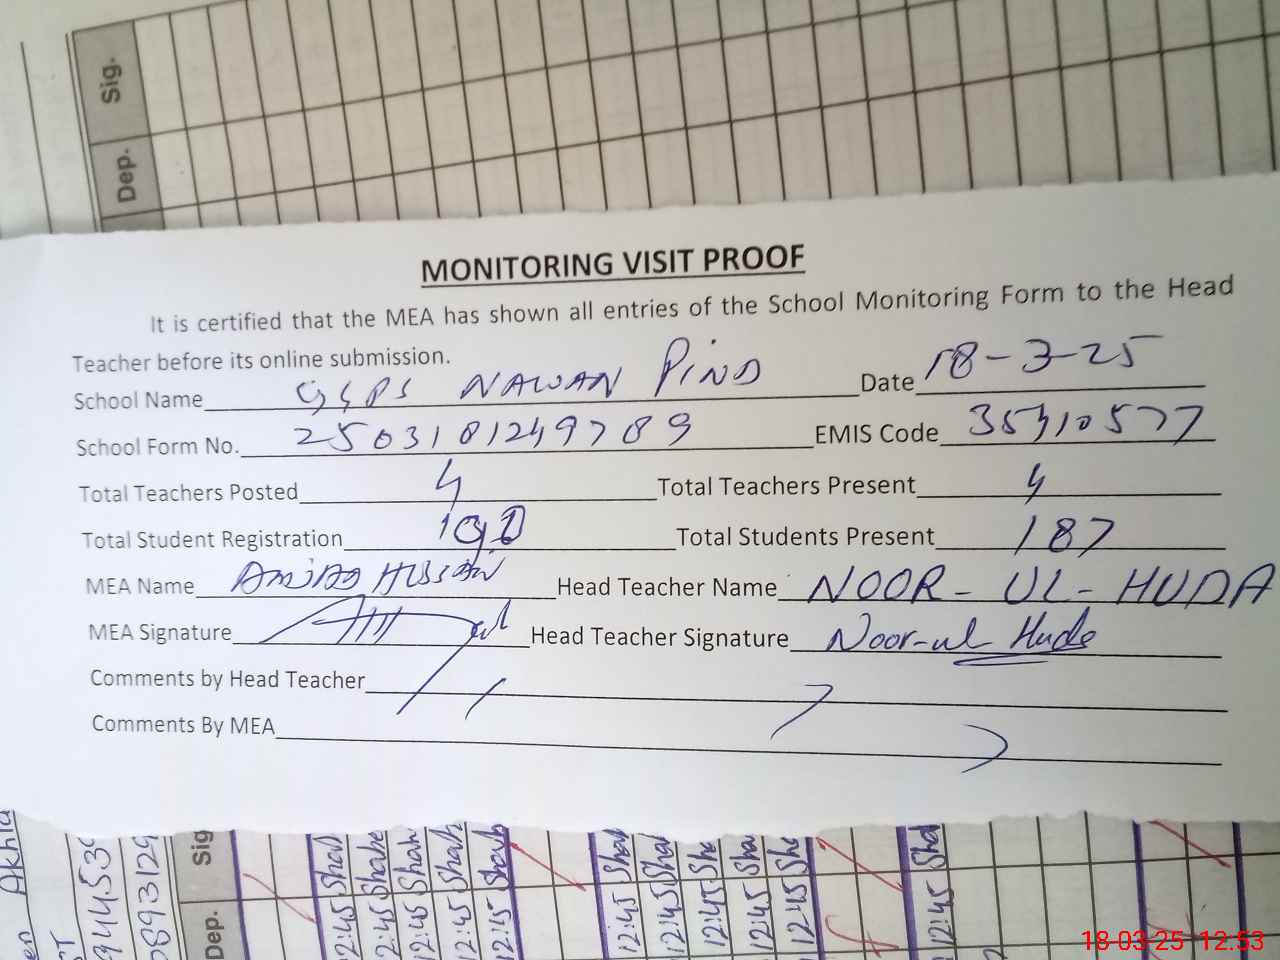 Sig.
Dep.
MONITORING VISIT PROOF
It is certified that the MEA has shown all entries of the School Monitoring Form to the Head
Teacher before its online submission.
School Name GGPS NAWAN PIND Date 18-3-25
School Form No. 2503181249789 EMIS Code 35410577
Total Teachers Posted 4 Total Teachers Present 4
Total Student Registration Total Students Present 187
MEA Name Head Teacher Name NOOR-UL-HUDA
MEA Signature Head Teacher Signature Noor-ul-Huda
Comments by Head Teacher
Comments By MEA
Sig
Dep.
12:45 Shah
12:45
12:45 Shah
12:45 Shah
12:15 Shah
12:45 Shah
12:45 Shah
12:45 Sha
12:45 Sha
12:45 Sha
12:45 Sha
18-03-25 12:53